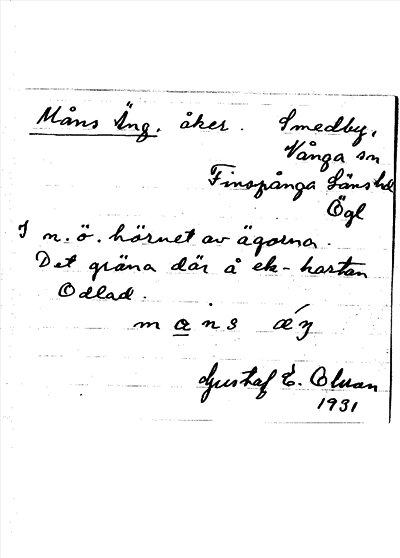 Måns Äng. åker. Smedby,
Vånga sn
Finspånga Läns hd
Ögl
I n. ö. hörnet av ägorna.
Det gröna där å ek-kartan
Odlad.
ma̲ns ǽŋ
Gustaf E. Olsson
1931